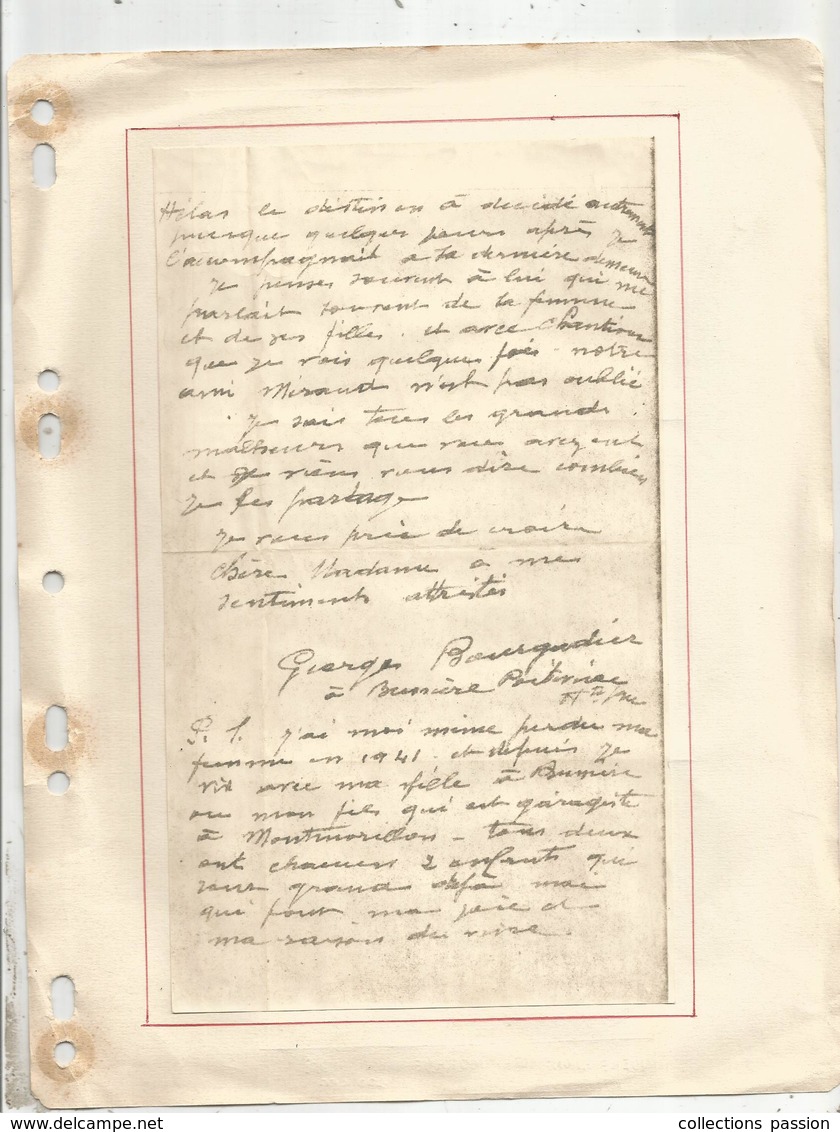 Hélas le destin en à décidé autrement
puisque quelques jours après je
l'accompagnait a la dernière demeure
Je penses souvent à lui qui me
parlait souvent de sa femme
et de ses filles. et avec
que je vois quelques fois notre
ami Méraud n'est pas oublié
Je sais tous les grands
malheurs que vous avez eut
et je viens vous dire combien
je les partage
Je vous prie de croire
Chère Madame a mes
sentiments attristés
Georges Bourgadier
à Bussière Poitevine
Hte Vne
P. S. j'ai moi même perdu ma
femme en 1941. et depuis je
vis avec ma fille à Bussière
ou mon fils qui est garagiste
à Montmorillon - tous deux
ont chacun 2 enfants qui
sont grands déjà mai
qui font ma joie et
ma raison de vivre.
collections passion